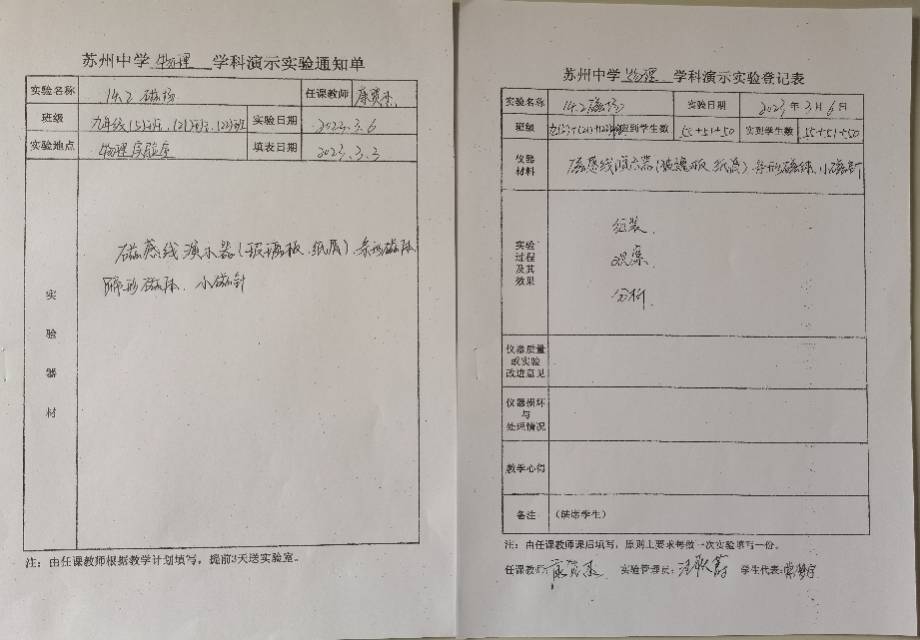 苏州中学 物理 学科演示实验通知单
实验名称 14.2 磁场 任课教师
班级 九年级(5)班、(21)班、(22)班 实验日期 2023.3.6
实验地点 物理实验室 填表日期 2023.3.3
实验器材
磁感线演示器(玻璃板、纸质)、条形磁体
蹄形磁体、小磁针
注:由任课教师根据教学计划填写,提前3天送实验室。
苏州中学 物理 学科演示实验登记表
实验名称 14.2磁场 实验日期 2023年3月6日
班级 应到学生数 55+51+50 实到学生数 55+51+50
仪器材料 磁感线演示器(玻璃板、纸质)、条形磁体、小磁针
实验过程及其效果
组装、
观察、
分析、
仪器质量或实验改进意见
仪器损坏与处理情况
教学心得
备注 (缺席学生)
注:由任课教师课后填写,原则上要求每做一次实验填写一份。
任课教师: 实验管理员: 学生代表: